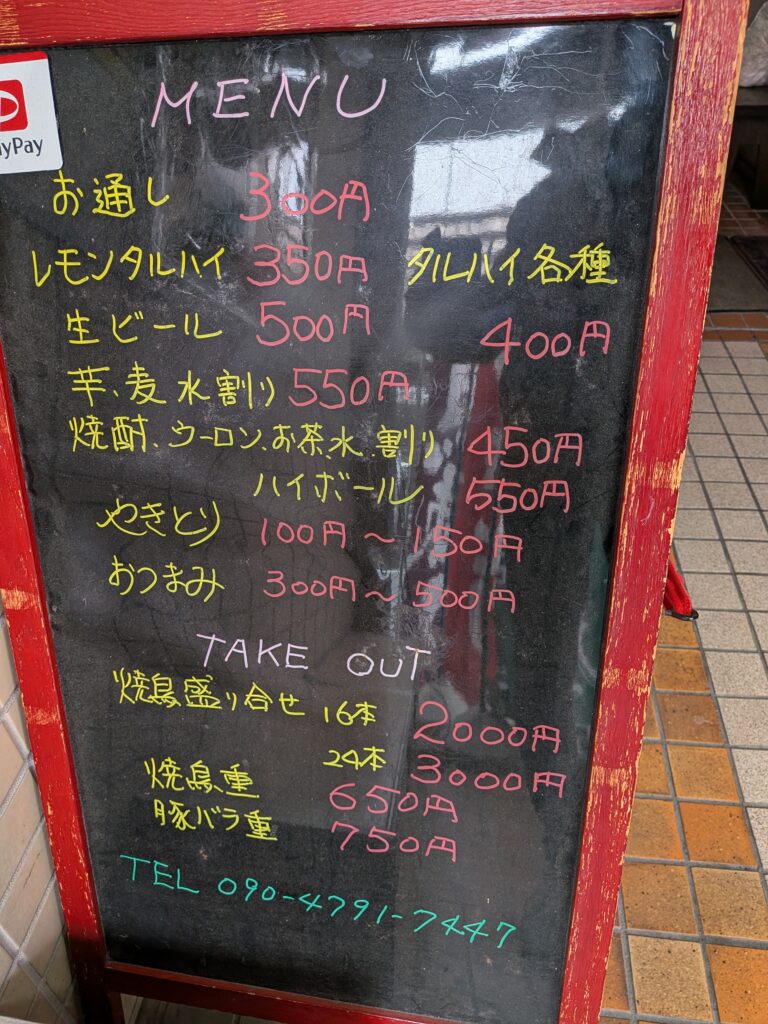 MENU
ayPay
お通し 300円
レモンタルハイ 350円 タルハイ各種
生ビール 500円 400円
芋、麦 水割り 550円
焼酎、ウーロン、お茶、水、割り 450円
ハイボール 550円
やきとり 100円〜150円
おつまみ 300円〜500円
TAKE OUT
焼鳥盛り合せ 16本 2000円
24本 3000円
焼鳥重 650円
豚バラ重 750円
TEL 090-4791-7447